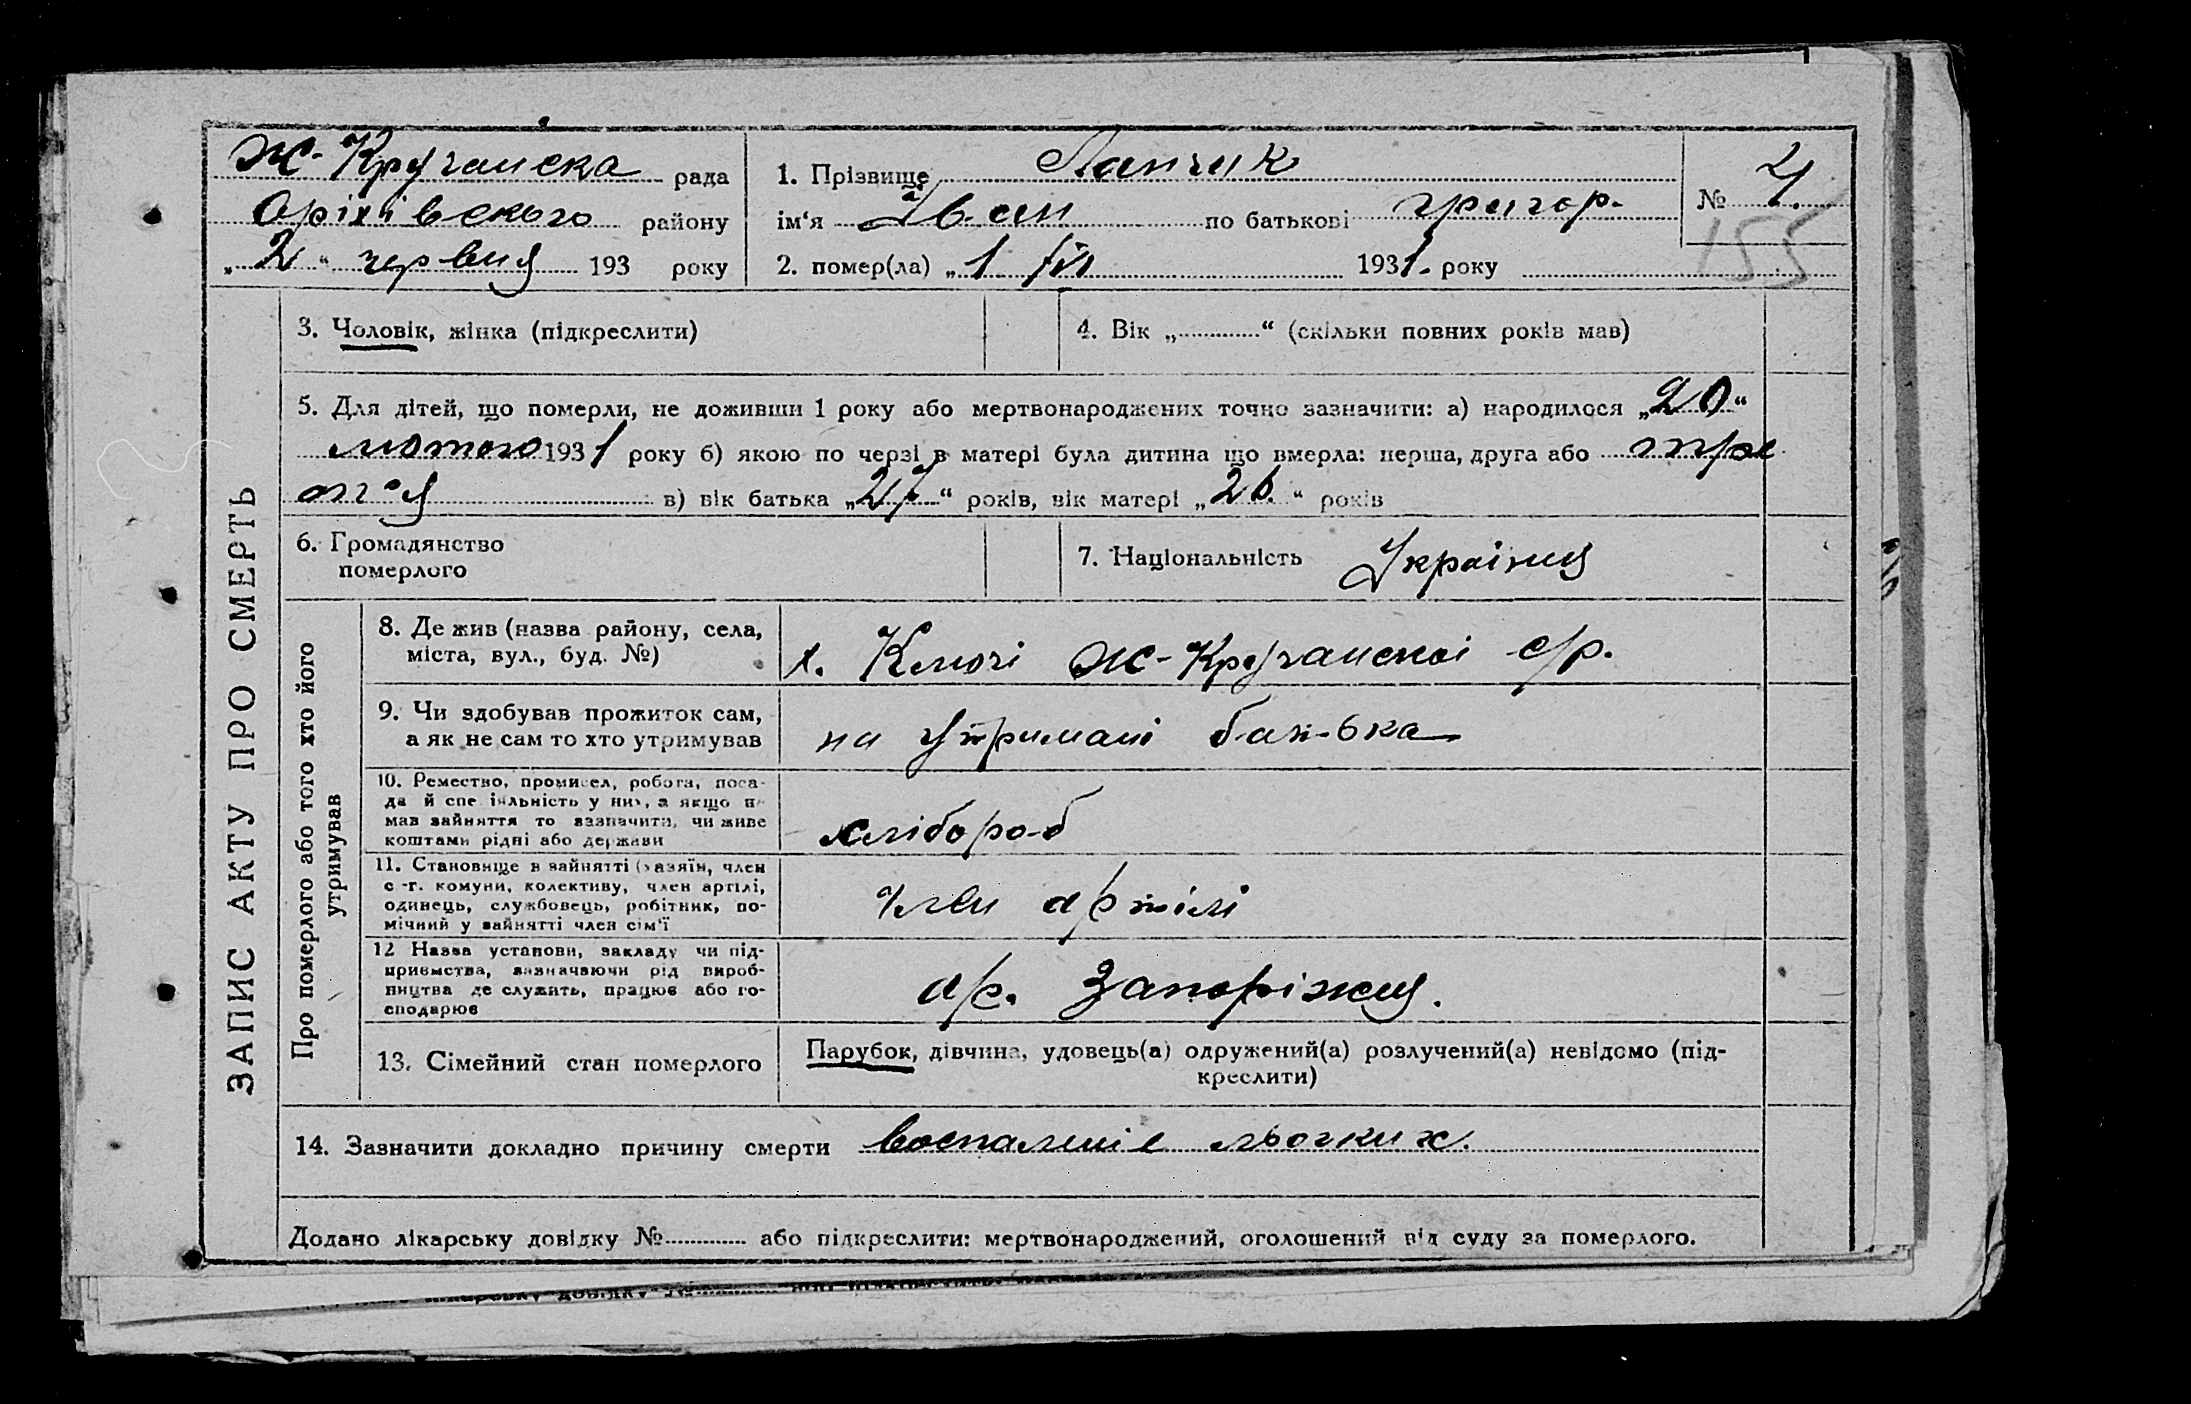 Ж-Кручанска рада
Оріхівського району
„ 2 “ червня 193 року
1. Прізвище Лапчик
ім‘я Іван по батькові григор.
2. помер(ла) „ 1 /VI 1931. року
№ 4.
155
3. Чоловік, жінка (підкреслити)
4. Вік „ “ (скільки повних років мав)
5. Для дітей, що померли, не доживши 1 року або мертвонароджених точно зазначити: а) народилося „20“
лютого 1931 року б) якою по черзі в матері була дитина що вмерла: перша, друга або тре
тя в) вік батька „27“ років, вік матері „26.“ років
6. Громадянство
померлого
7. Національність Україниця
ЗАПИС АКТУ ПРО СМЕРТЬ
Про померлого або того хто його
утримував
8. Де жив (назва району, села,
міста, вул., буд. №)
х. Ключі Ж-Кручанскої с/р.
9. Чи здобував прожиток сам,
а як не сам то хто утримував
на утримані батька
10. Ремество, промисел, робота, поса-
да й спеціяльність у них, а якщо не
мав зайняття то зазначити, чи живе
коштами рідні або держави
хлібороб
11. Становище в зайнятті (хазяїн, член
с-г. комуни, колективу, член артілі,
одинець, службовець, робітник, по-
мічний у зайнятті член сім‘ї
член артілі
12 Назва установи, закладу чи під-
приємства, зазначаючи рід вироб-
ництва де служить, працює або го-
сподарює
ар. Запоріжця.
13. Сімейний стан померлого
Парубок, дівчина, удовець(а) одружений(а) розлучений(а) невідомо (під-
креслити)
14. Зазначити докладно причину смерти воспаленіє льогких.
Додано лікарську довідку № або підкреслити: мертвонароджений, оголошений від суду за померлого.